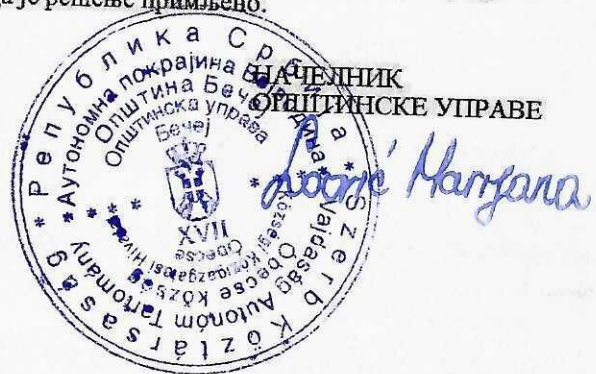 је решење примљено.
НАЧЕЛНИК
ОПШТИНСКЕ УПРАВЕ
Marijana
Република Србија * Szerb Köztársaság *
Аутономна покрајина Војводина * Vajdaság Autonóm Tartomány *
Општина Бечеј
Óbecse község
Општинска управа
Községi Közigazgatási Hivatal
Бечеј
XVII
Óbecse